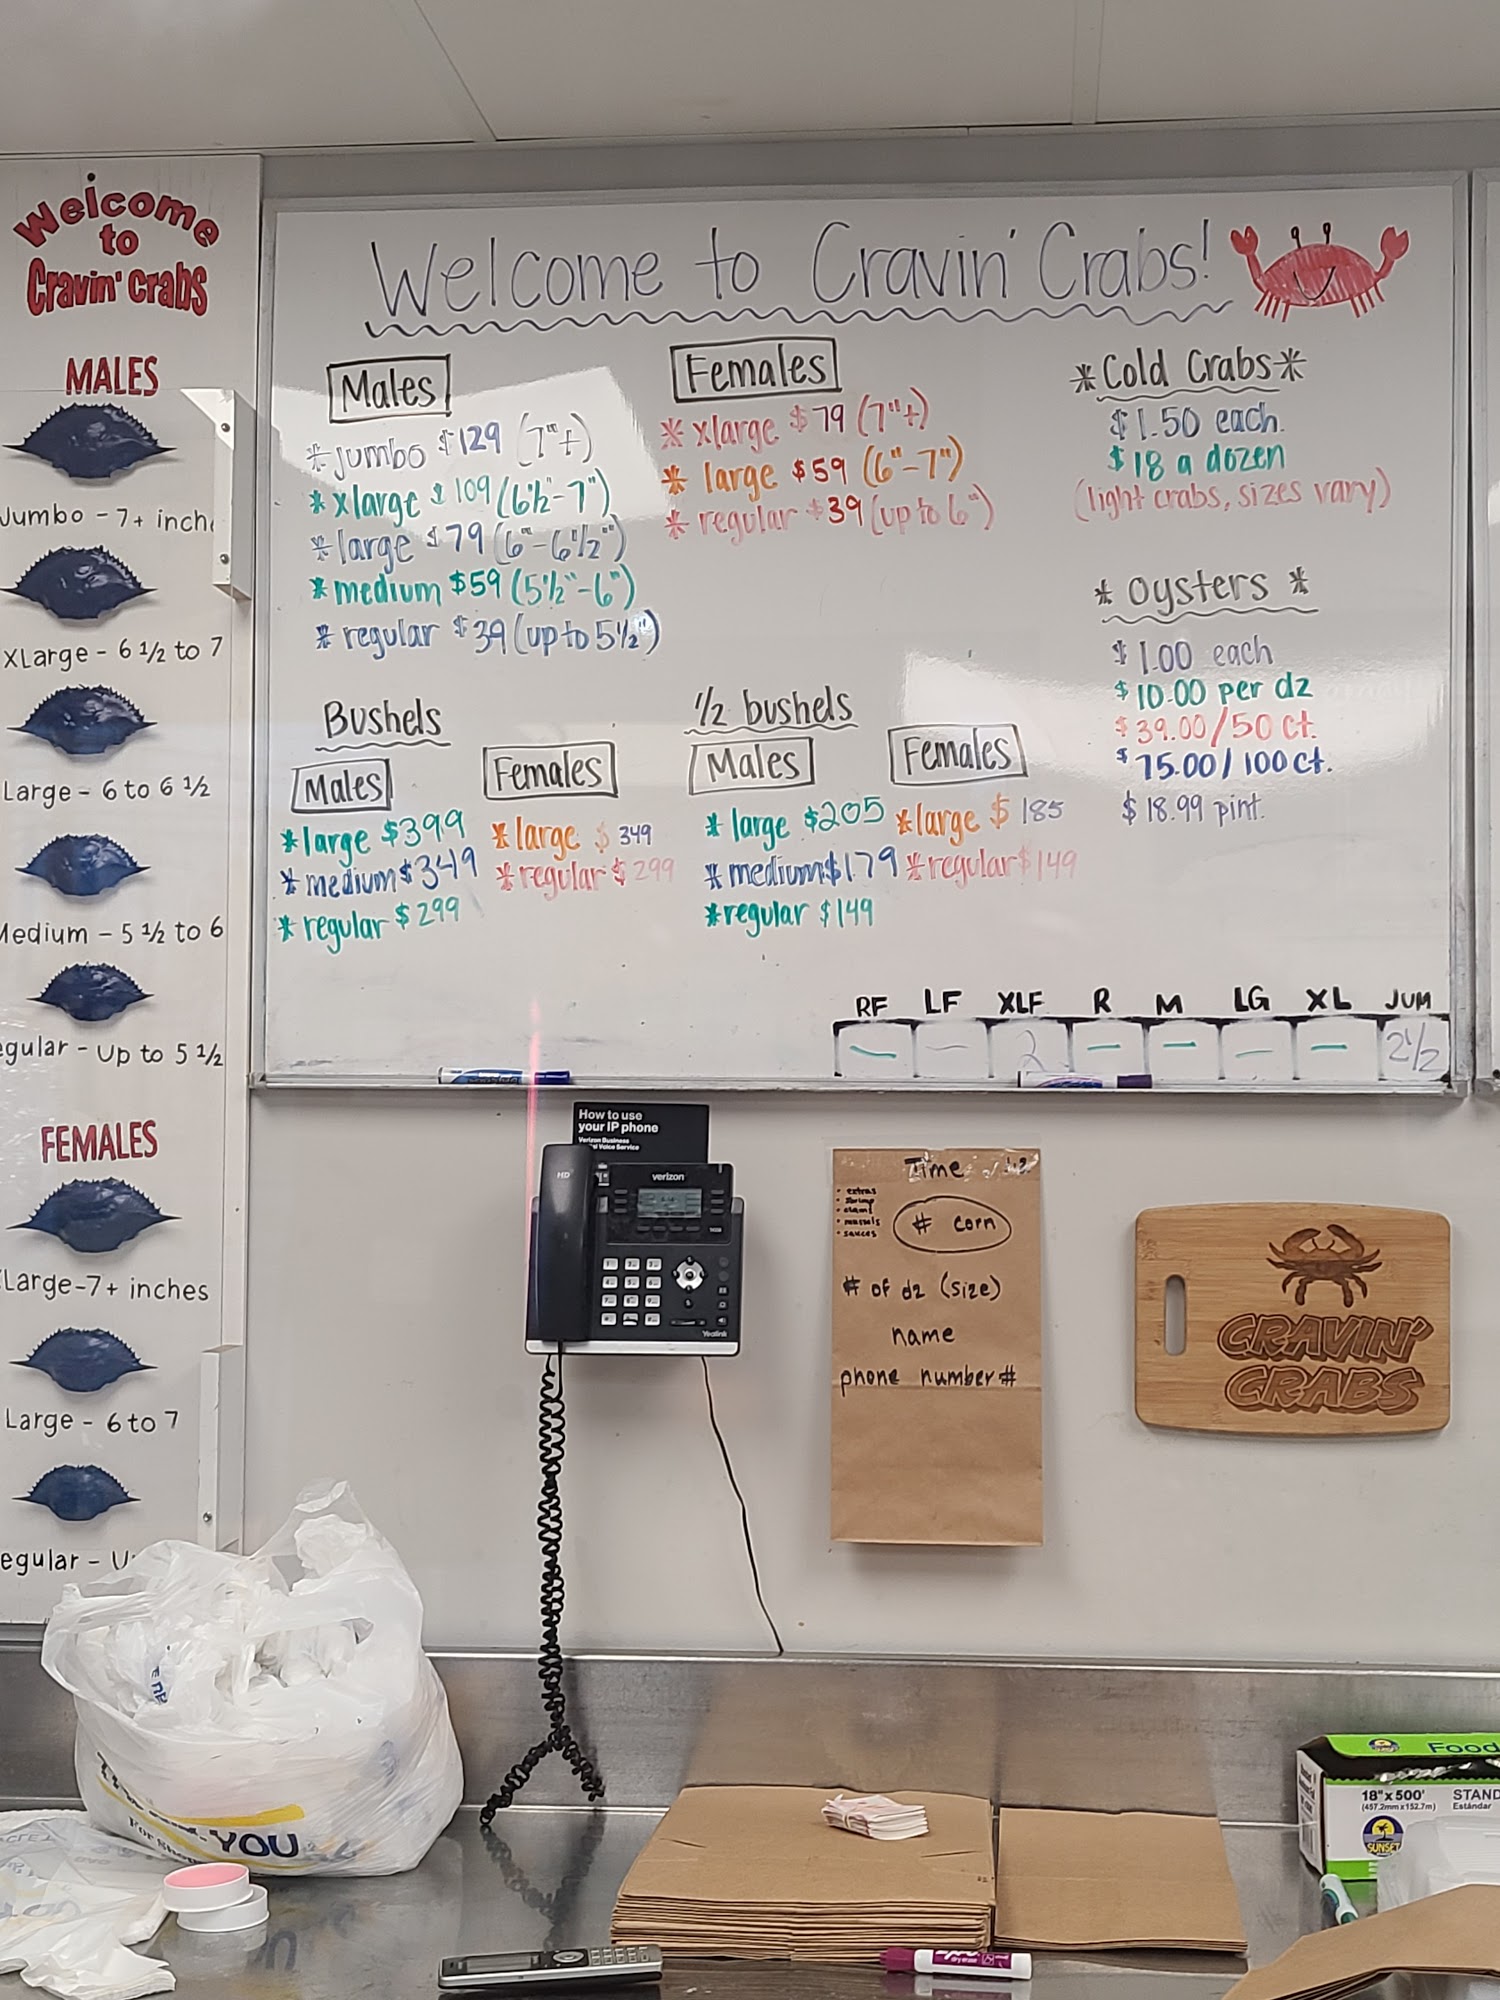 Welcome
to
Cravin' Crabs
MALES
Jumbo - 7+ inch
XLarge - 6 1/2 to 7
Large - 6 to 6 1/2
Medium - 5 1/2 to 6
egular - Up to 5 1/2
FEMALES
Large-7+ inches
Large - 6 to 7
egular - U
Welcome to Cravin' Crabs!
Males
* jumbo $129 (7"+)
* xlarge $109 (6 1/2"-7")
* large $79 (6"-6 1/2")
* medium $59 (5 1/2"-6")
* regular $39 (up to 5 1/2")
Females
* xlarge $79 (7"+)
* large $59 (6"-7")
* regular $39 (up to 6")
*Cold Crabs*
$1.50 each.
$18 a dozen
(light crabs, sizes vary)
* Oysters *
$1.00 each
$10.00 per dz
$39.00/50 ct.
$75.00/100 ct.
$18.99 pint.
Bushels
Males
*large $399
*medium $349
*regular $299
Females
*large $349
*regular $299
1/2 bushels
Males
*large $205
*medium $179
*regular $149
Females
*large $185
*regular $149
RF LF XLF R M LG XL JUM
- - 2 - - - - 2 1/2
How to use
your IP phone
Verizon Business
Voice Service
HD
verizon
Yealink
Time
• extras
• shrimp
• clams
• mussels
• sauces
# corn
# of dz (size)
name
phone number #
CRAVIN'
CRABS
YOU
Food
18" x 500'
(457.2mm x 152.7m)
STAND
Estándar
SUNSET